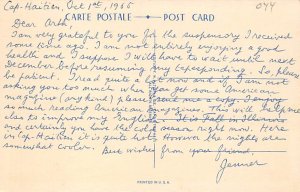 Cap-Haitien, Oct 1st, 1966
044
CARTE POSTALE POST CARD
Dear Arth
I am very grateful to you for the suspensory I received
some time ago. I am not entirely enjoying a good
health and I suppose I will have to wait until next
December before resuming my . So please
be patient. I read quite a lot now and if I am not
asking you too much when you get some American
magazine (any kind) please send me a copy. I enjoy
so much reading American magazines. This will help me
also to improve my English. It is Fall in Illinois
and certainly you have the cold season right now. Here
in Cap-Haitien it is quite hot. However the nights are
somewhat cooler. Best wishes from your friend.
PRINTED IN U.S.A.